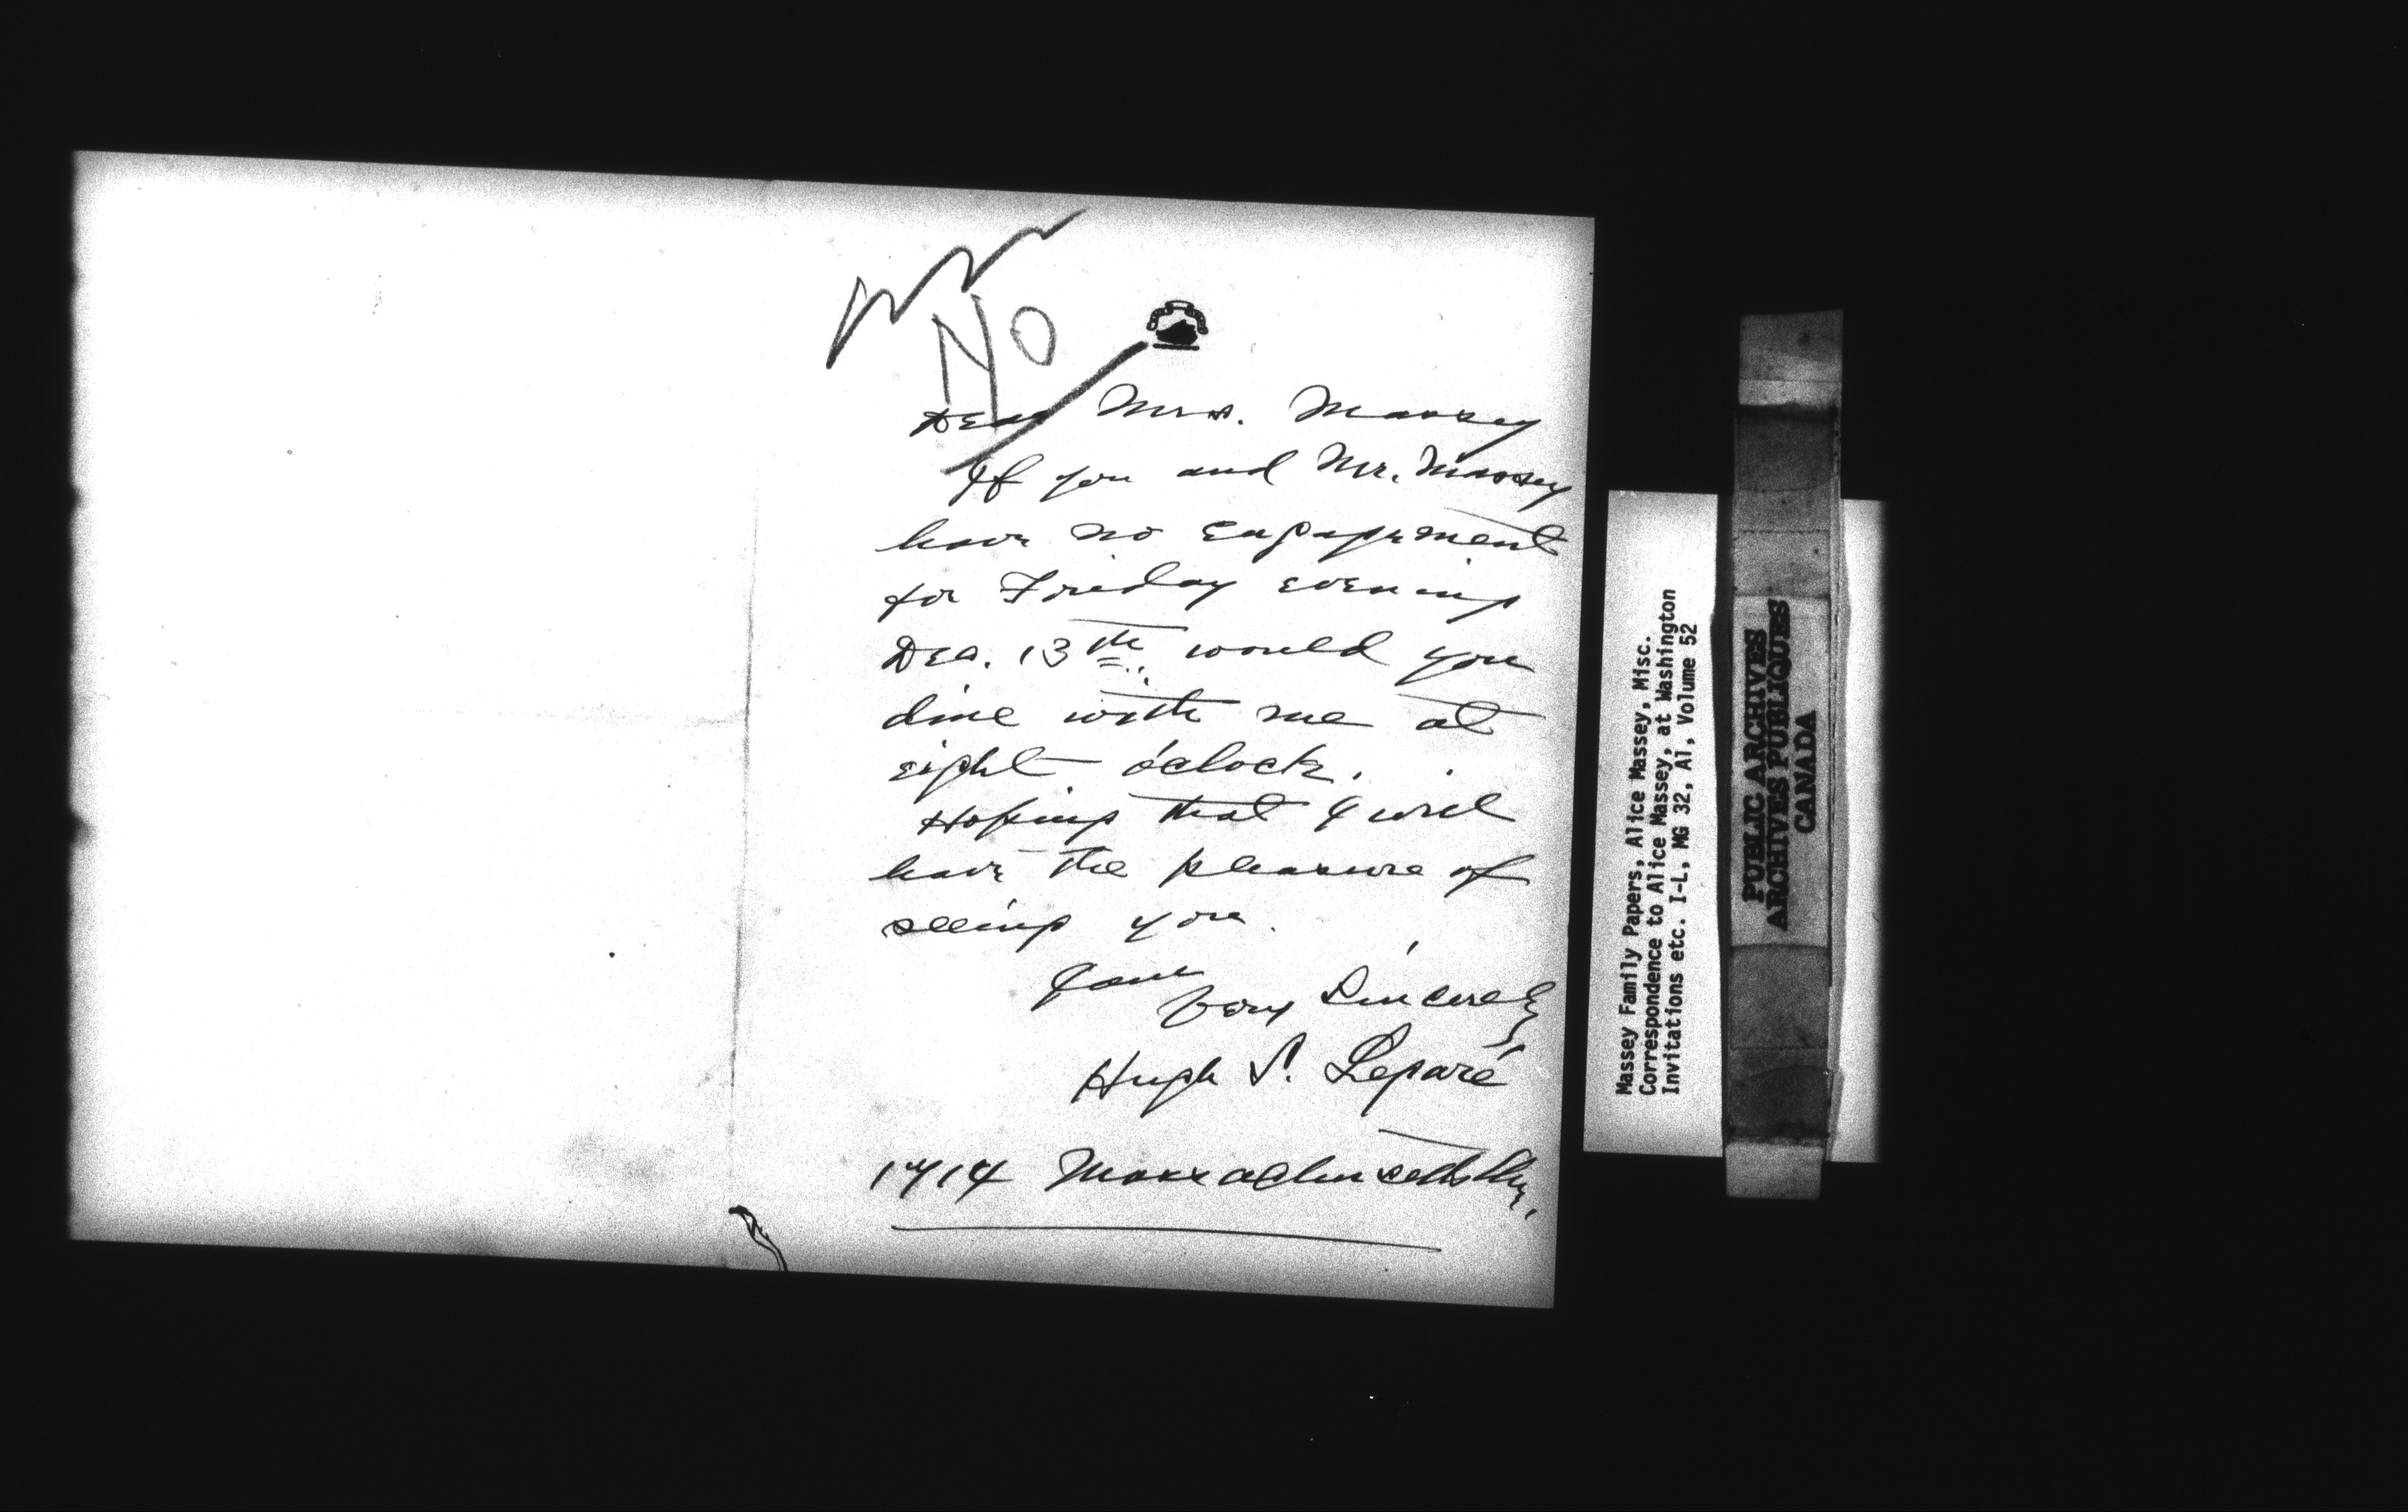 NO
Dear Mrs. Massey
If you and Mr. Massey
have no engagement
for Friday evening
Dec. 13th would you
dine with me at
eight o'clock.
Hoping that I will
have the pleasure of
seeing you.
Yours
Very Sincerely
Hugh S. Legaré
1714 Massachusetts Av.
Massey Family Papers, Alice Massey, Misc.
Correspondence to Alice Massey, at Washington
Invitations etc. I-L, MG 32, A1, Volume 52
PUBLIC ARCHIVES
ARCHIVES PUBLIQUES
CANADA